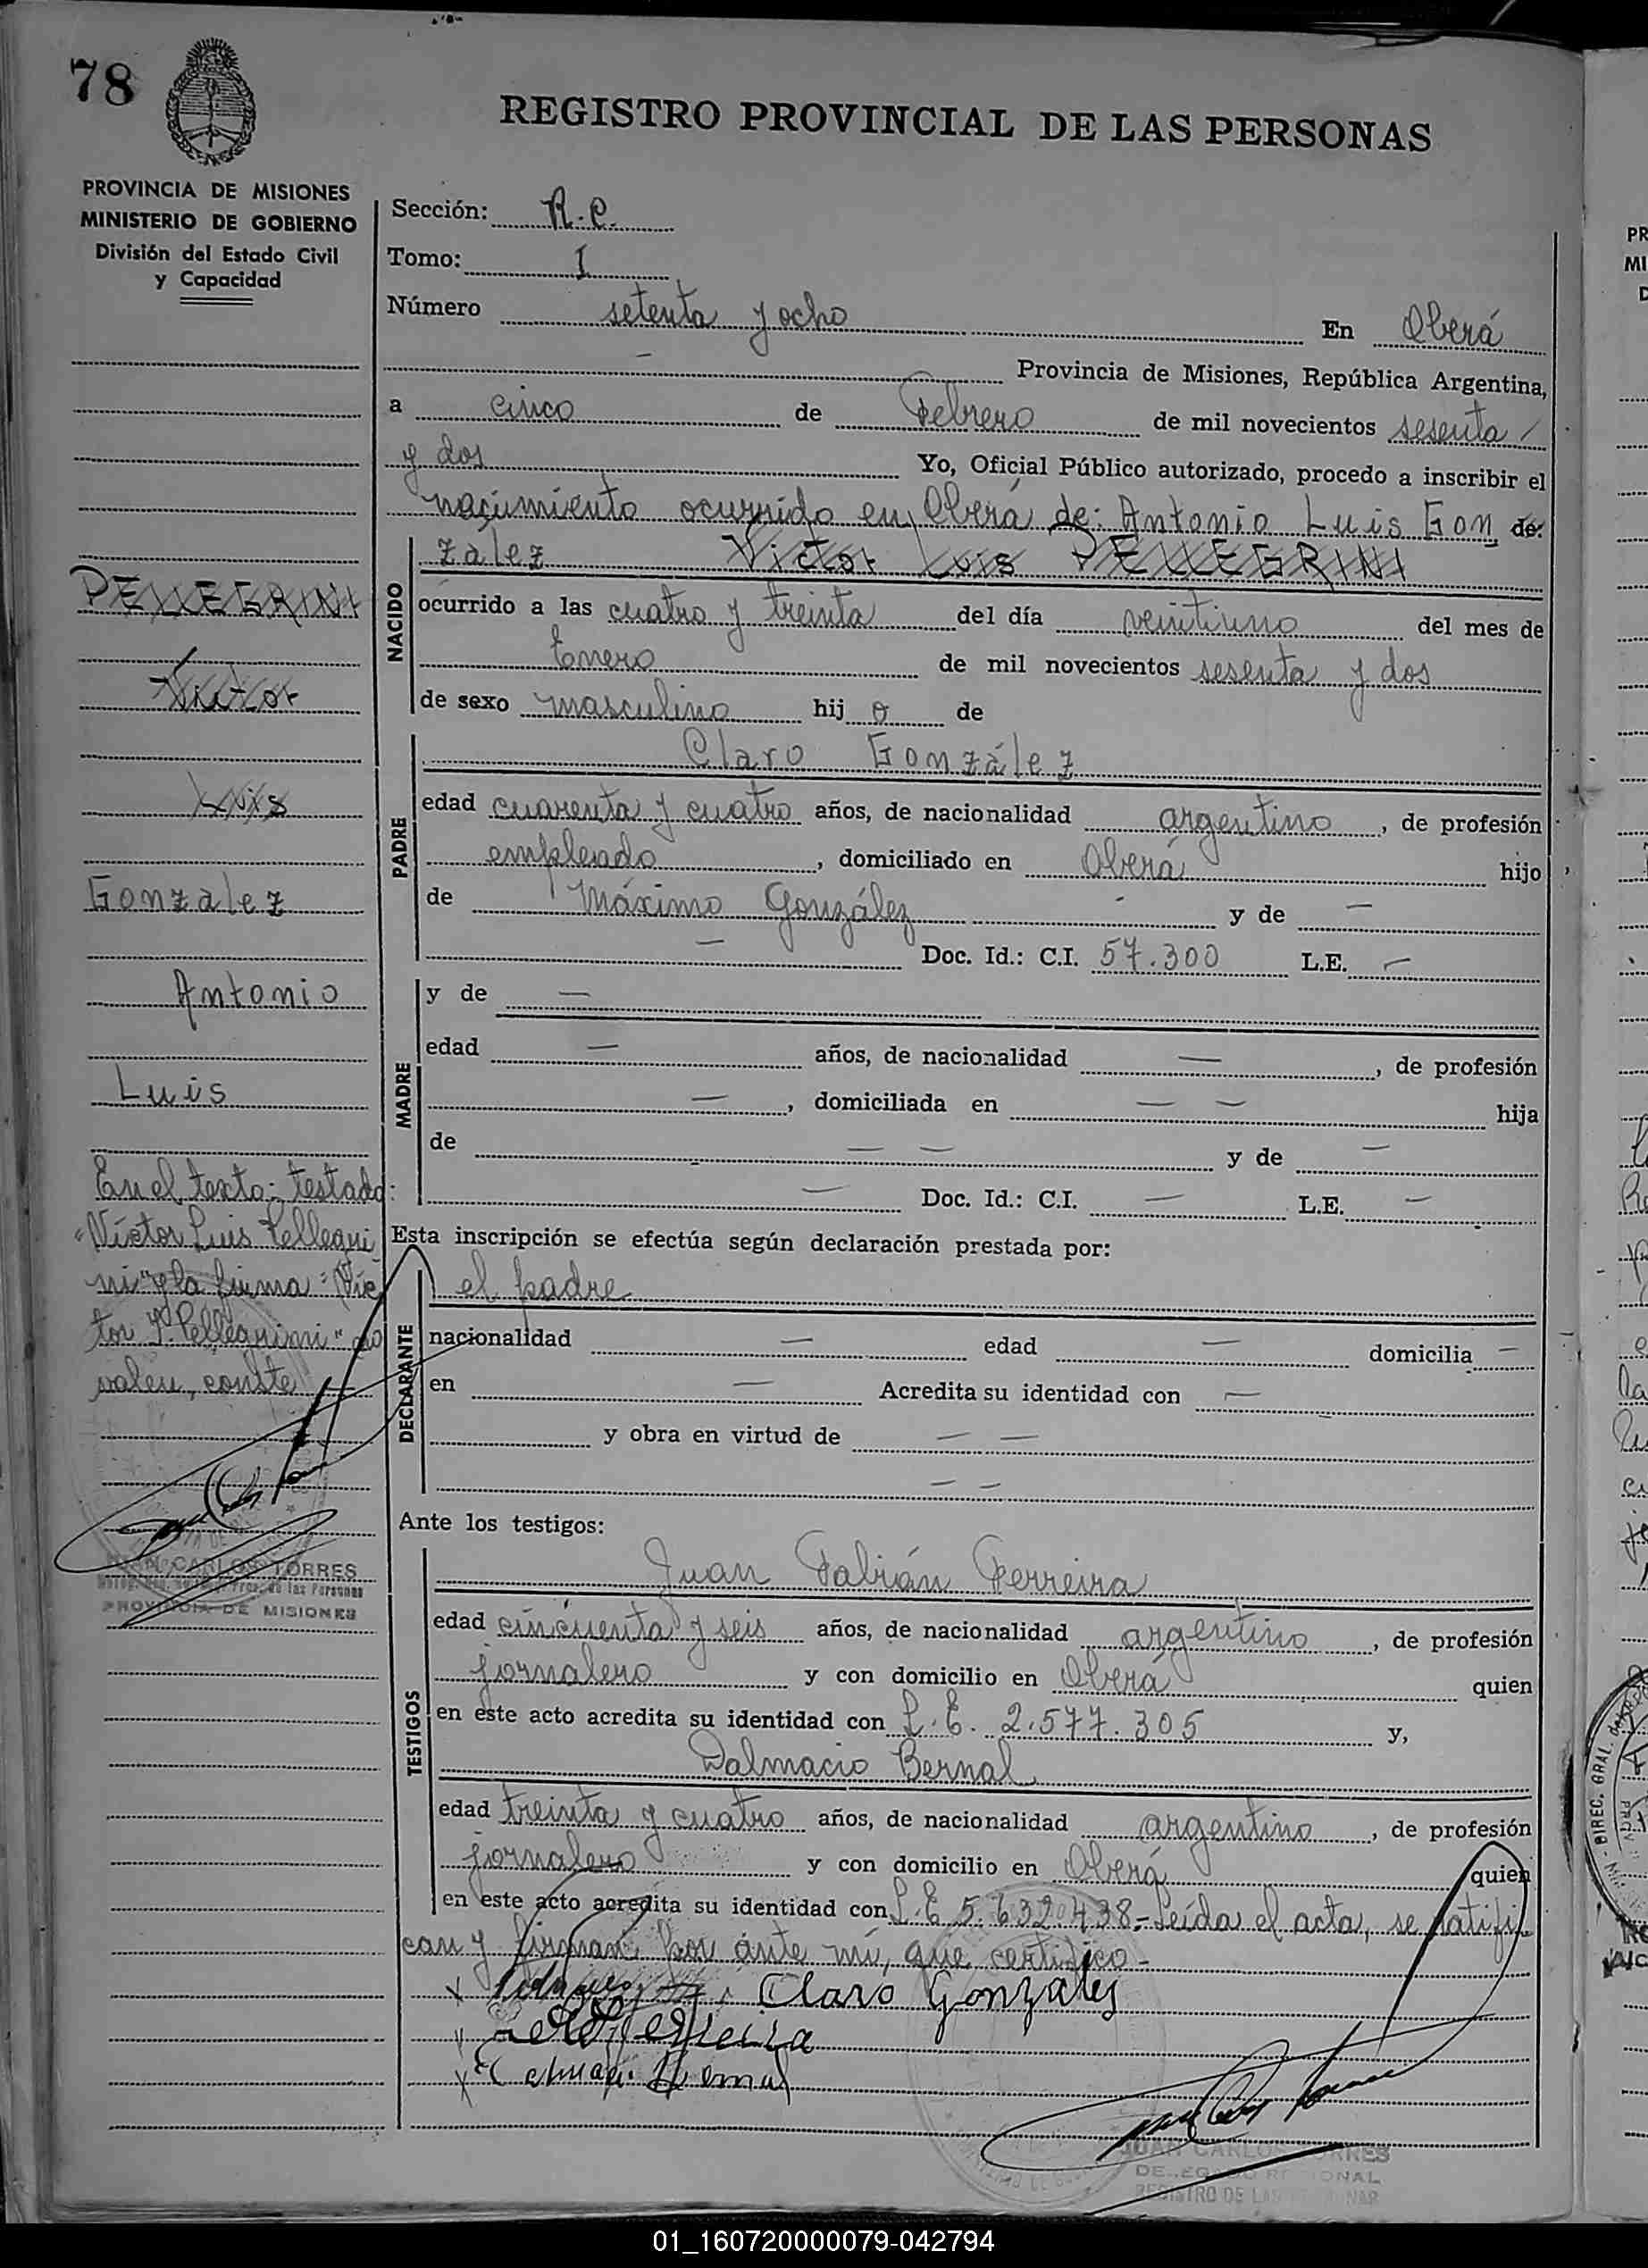 78
REGISTRO PROVINCIAL DE LAS PERSONAS
PROVINCIA DE MISIONES
MINISTERIO DE GOBIERNO
División del Estado Civil
y Capacidad
Sección: R.C.
Tomo: I
Número setenta y ocho En Oberá
— Provincia de Misiones, República Argentina,
a cinco de Febrero de mil novecientos sesenta /
y dos Yo, Oficial Público autorizado, procedo a inscribir el
nacimiento ocurrido en Oberá de: Antonio Luis Gon de:
NACIDO
zález Victor Luis PELLEGRINI
ocurrido a las cuatro y treinta del día veintiuno del mes de
Enero de mil novecientos sesenta y dos
de sexo masculino hij o de
PADRE
Claro González
edad cuarenta y cuatro años, de nacionalidad argentino, de profesión
empleado, domiciliado en Oberá hijo
de Máximo González y de —
— Doc. Id.: C.I. 57.300 L.E. —
MADRE
y de —
edad — años, de nacionalidad —, de profesión
—, domiciliada en — — hija
de — — y de —
— Doc. Id.: C.I. — L.E. —
Esta inscripción se efectúa según declaración prestada por:
DECLARANTE
el padre
nacionalidad — edad — domicilia —
en — Acredita su identidad con —
y obra en virtud de — —
— —
Ante los testigos:
TESTIGOS
Juan Fabián Ferreira
edad cincuenta y seis años, de nacionalidad argentino, de profesión
jornalero y con domicilio en Oberá quien
en este acto acredita su identidad con L.E. 2.577.305 y,
Dalmacio Bernal
edad treinta y cuatro años, de nacionalidad argentino, de profesión
jornalero y con domicilio en Oberá quien
en este acto acredita su identidad con L.E 5.632.438.- Leída el acta, se ratifi
can y firman por ánte mí, que certifico-
Claro Gonzales
PELLEGRINI
Victor
Luis
Gonzalez
Antonio
Luis
En el texto: testado:
"Víctor Luis Pellegri
ni" y la firma: "Víc
tor L. Pellegrini" no
valen, conste
JUAN CARLOS TORRES
PROVINCIA DE MISIONES
JUAN CARLOS TORRES
DELEGADO REGIONAL
01_160720000079-042794